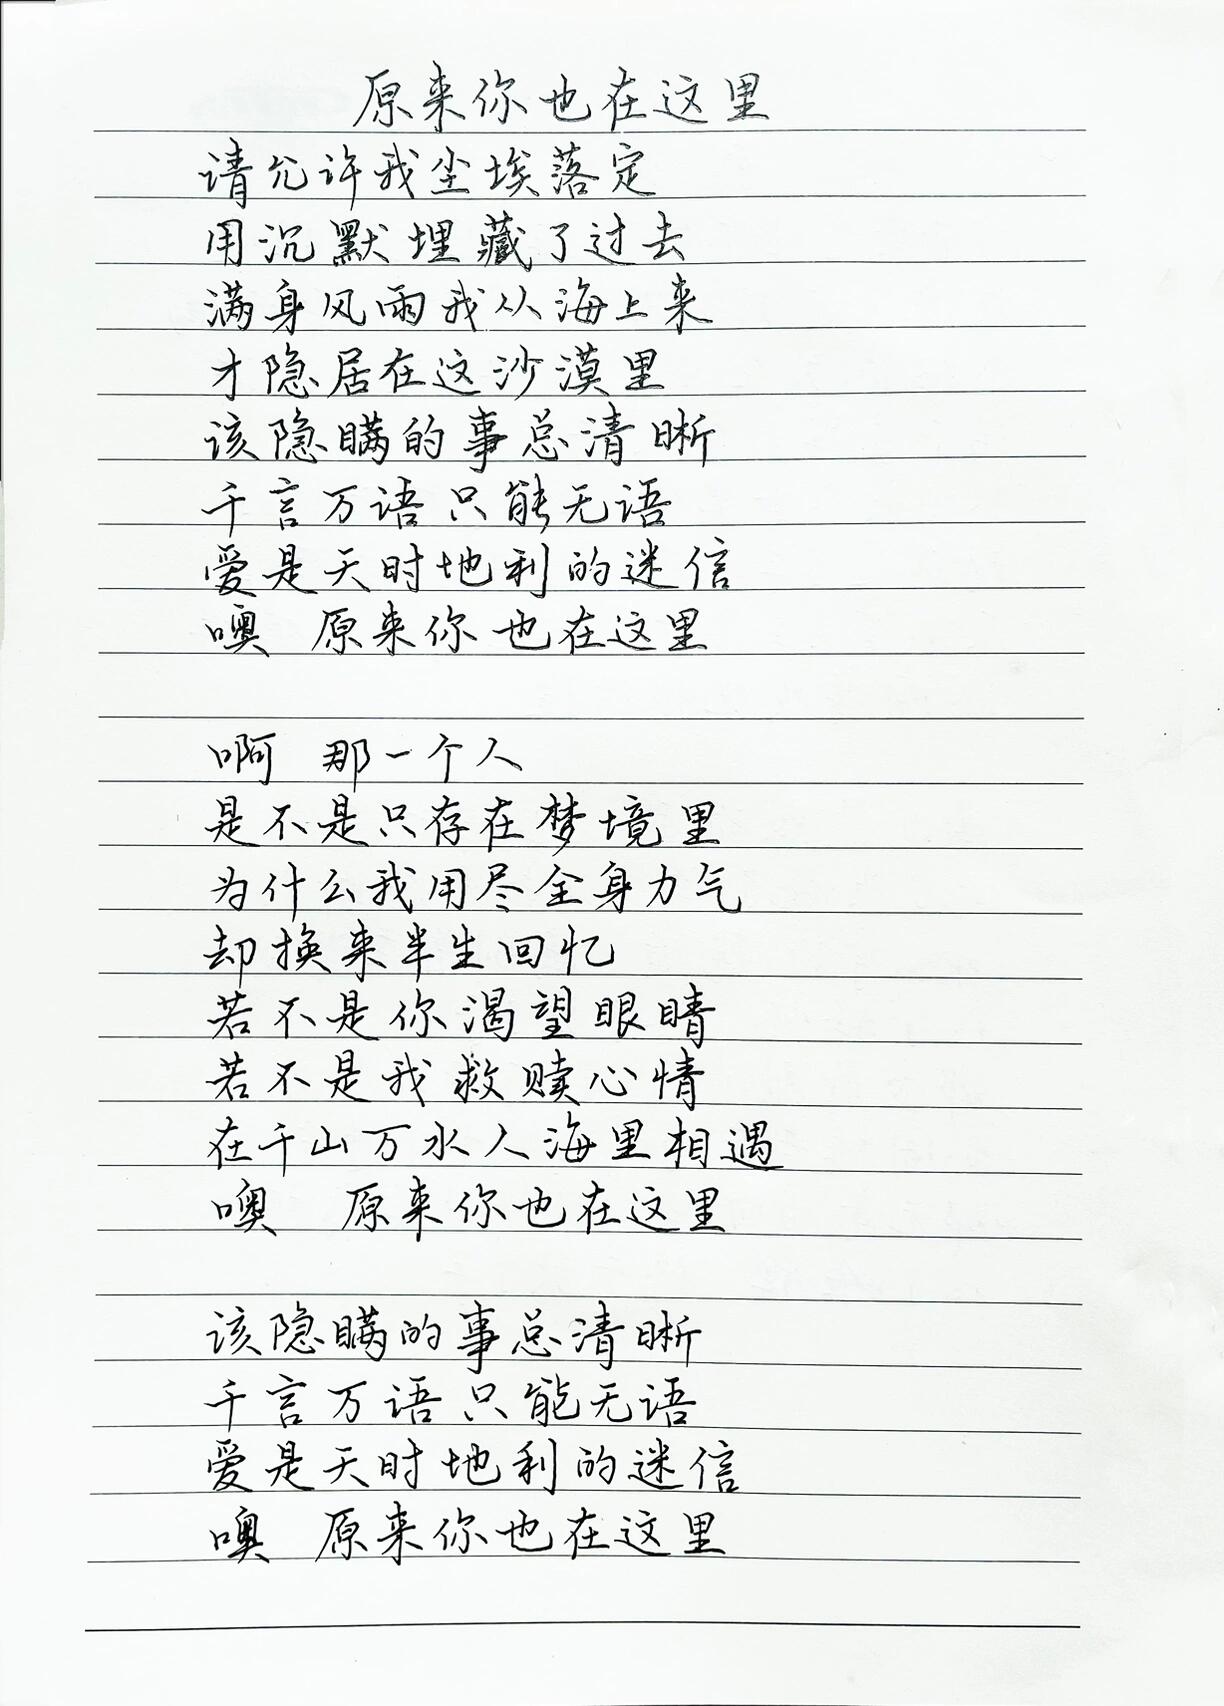 原来你也在这里
请允许我尘埃落定
用沉默埋藏了过去
满身风雨我从海上来
才隐居在这沙漠里
该隐瞒的事总清晰
千言万语只能无语
爱是天时地利的迷信
噢 原来你也在这里
啊 那一个人
是不是只存在梦境里
为什么我用尽全身力气
却换来半生回忆
若不是你渴望眼睛
若不是我救赎心情
在千山万水人海里相遇
噢 原来你也在这里
该隐瞒的事总清晰
千言万语只能无语
爱是天时地利的迷信
噢 原来你也在这里